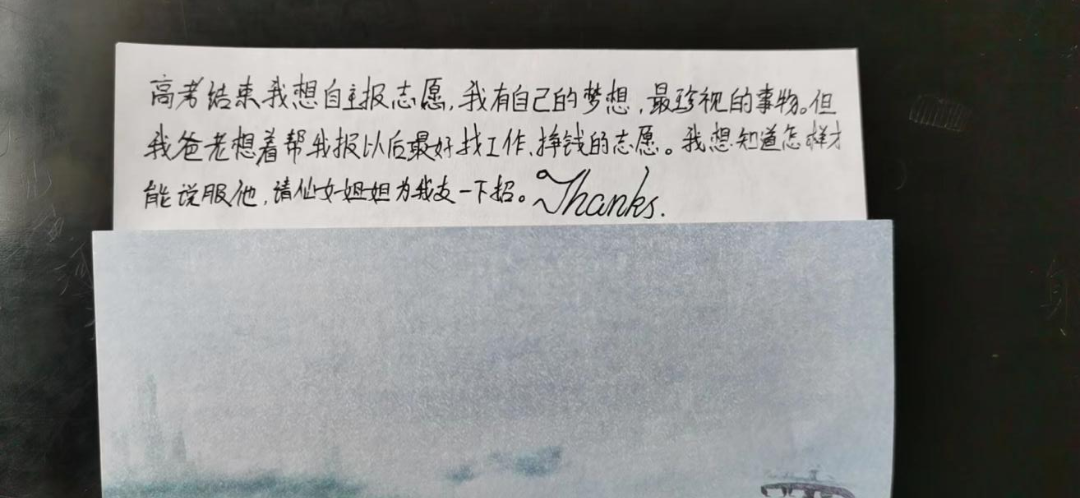 高考结束我想自主报志愿,我有自己的梦想,最珍视的事物。但
我爸老想着帮我报以后最好找工作、挣钱的志愿。我想知道怎样才
能说服他,请仙女姐姐为我支一下招。Thanks.